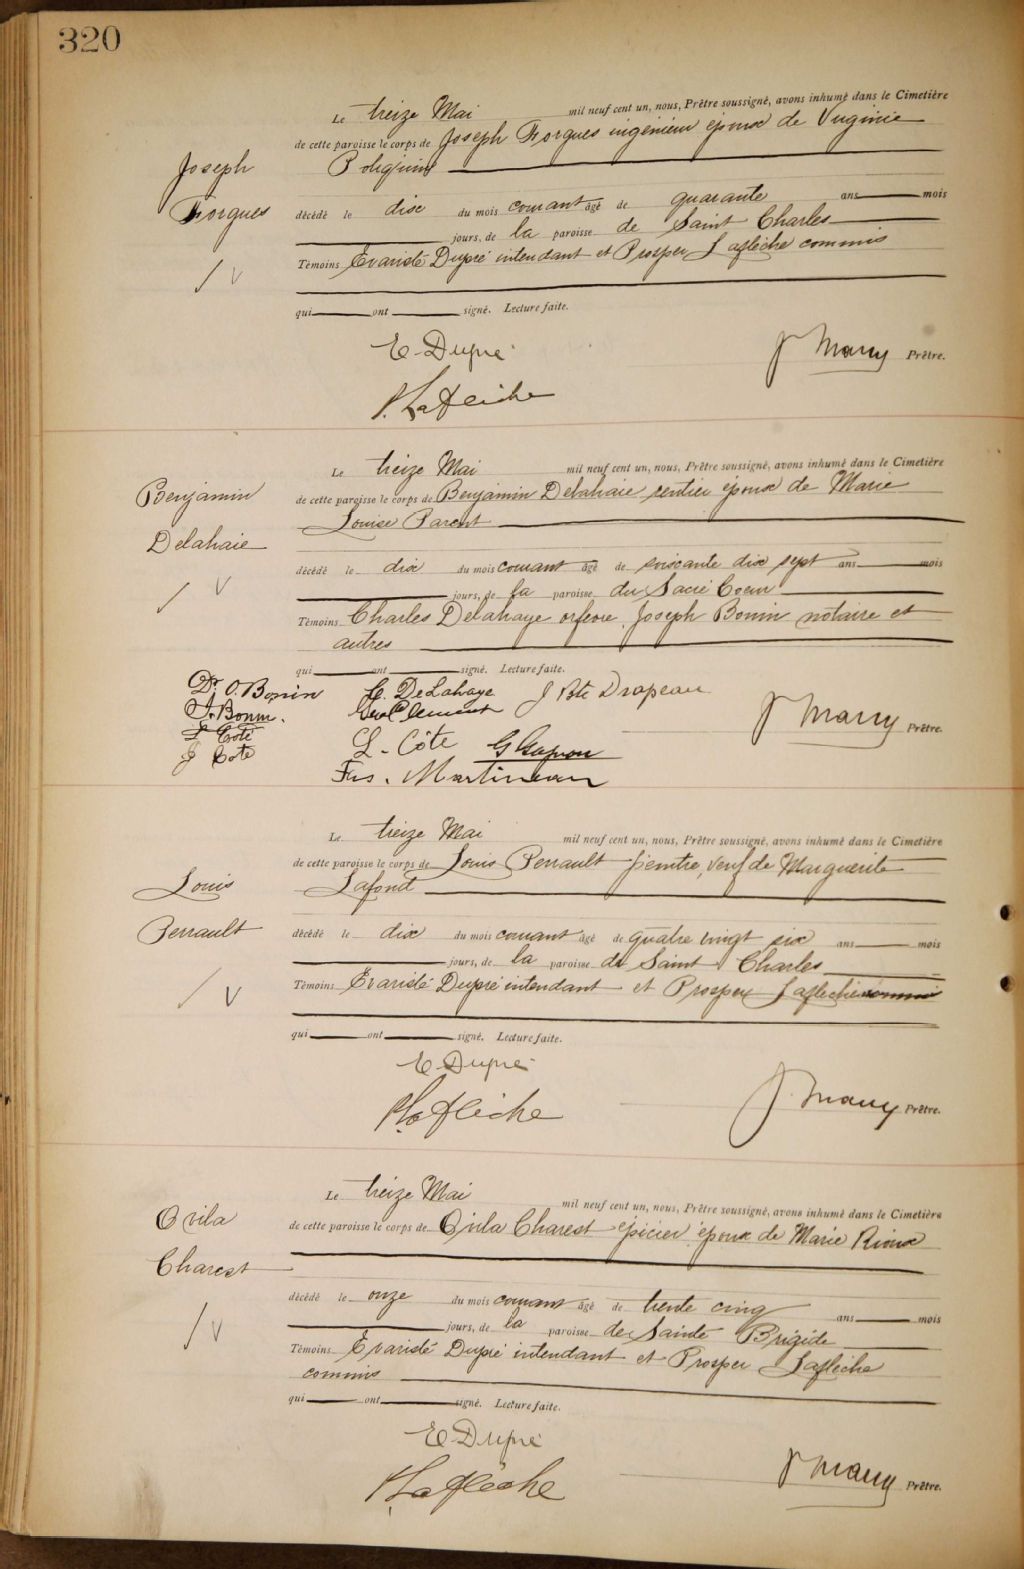 320
Le treize Mai mil neuf cent un, nous, Prêtre soussigné, avons inhumé dans le Cimetière
de cette paroisse le corps de Joseph Forgues ingénieur époux de Virginie
Joseph
Forgues
décédé le dix du mois courant âgé de quarante ans mois
jours, de la paroisse de Saint Charles
Témoins Evariste Dupré intendant et Prosper Laflèche commis
qui ont signé. Lecture faite.
E Dupré
J Marry Prêtre.
P. Laflèche
Le treize Mai mil neuf cent un, nous, Prêtre soussigné, avons inhumé dans le Cimetière
de cette paroisse le corps de Benjamin Delahaie, rentier époux de Marie
Louise Parent
Benjamin
Delahaie
décédé le dix du mois courant âgé de soixante dix sept ans mois
jours, de la paroisse du Sacré Coeur
Témoins Charles Delahaye orfèvre, Joseph Bonin notaire et
autres
qui ont signé. Lecture faite.
Dr O. Bonin C. DeLahaye J Bte Drapeau
J. Bonin. Geo Clement
J Marry Prêtre.
L Coté
J Coté
L. Côté G Gagnon
Frs. Martineau
Le treize Mai mil neuf cent un, nous, Prêtre soussigné, avons inhumé dans le Cimetière
de cette paroisse le corps de Louis Perrault peintre, veuf de Marguerite
Lafond
Louis
Perrault
décédé le dix du mois courant âgé de quatre vingt six ans mois
jours, de la paroisse de Saint Charles
Témoins Evariste Dupré intendant et Prosper Laflèche commis
qui ont signé. Lecture faite.
E Dupré
J. Marry Prêtre.
P. Laflèche
Le treize Mai mil neuf cent un, nous, Prêtre soussigné, avons inhumé dans le Cimetière
de cette paroisse le corps de Ovila Charest épicier époux de Marie Rioux
Ovila
Charest
décédé le onze du mois courant âgé de trente cinq ans mois
jours, de la paroisse de Sainte Brigide
Témoins Evariste Dupré intendant et Prosper Laflèche
commis
qui ont signé. Lecture faite.
E Dupré
J Marry Prêtre.
P. Laflèche